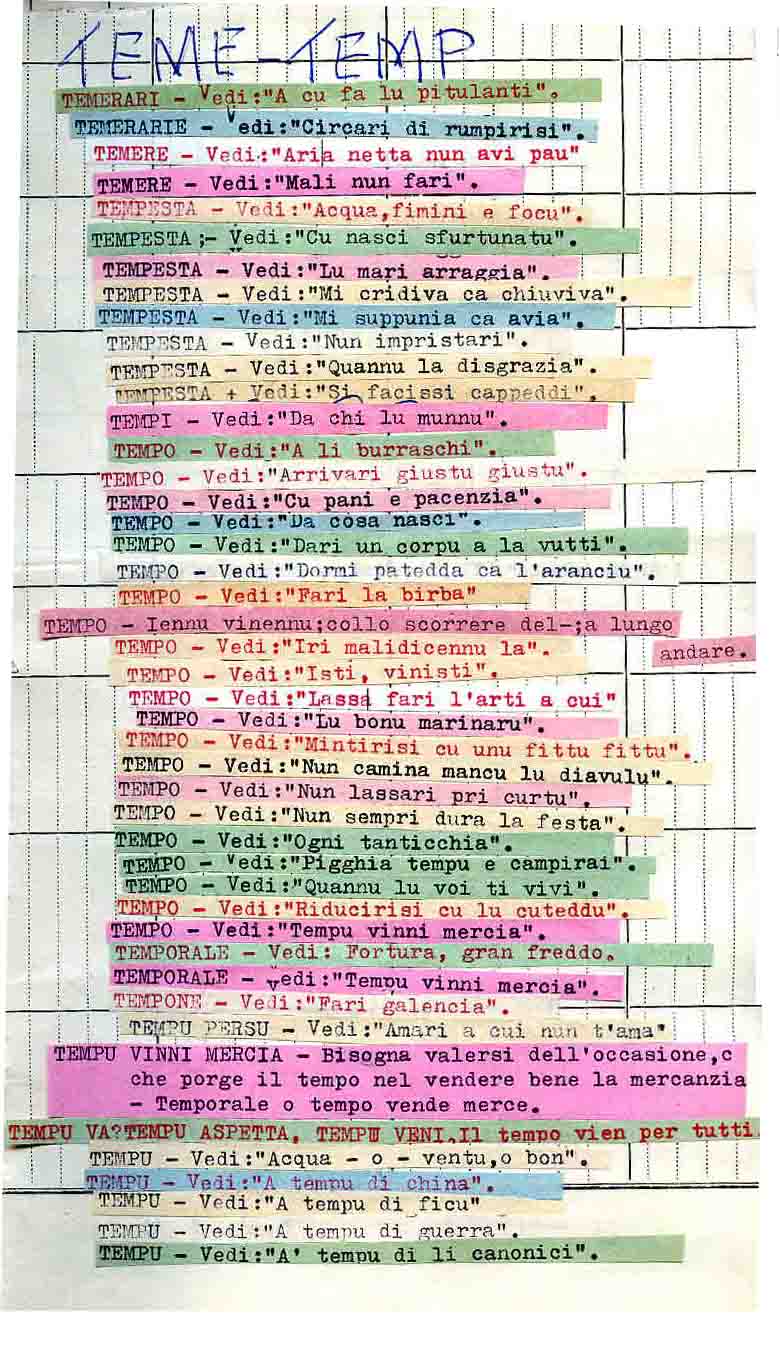 TEME-TEMP
TEMERARI - Vedi:"A cu fa lu pitulanti".
TEMERARIE - Vedi:"Circari di rumpirisi".
TEMERE - Vedi:"Aria netta nun avi pau"
TEMERE - Vedi:"Mali nun fari".
TEMPESTA - Vedi:"Acqua,fimini e focu".
TEMPESTA ;- Vedi:"Cu nasci sfurtunatu".
TEMPESTA - Vedi:"Lu mari arraggia".
TEMPESTA - Vedi:"Mi cridiva ca chiuviva".
TEMPESTA - Vedi:"Mi suppunia ca avia".
TEMPESTA - Vedi:"Nun impristari".
TEMPESTA - Vedi:"Quannu la disgrazia".
TEMPESTA + Vedi:"Si facissi cappeddi".
TEMPI - Vedi:"Da chi lu munnu".
TEMPO - Vedi:"A li burraschi".
TEMPO - Vedi:"Arrivari giustu giustu".
TEMPO - Vedi:"Cu pani e pacenzia".
TEMPO - Vedi:"Da cosa nasci".
TEMPO - Vedi:"Dari un corpu a la vutti".
TEMPO - Vedi:"Dormi patedda ca l'aranciu".
TEMPO - Vedi:"Fari la birba"
TEMPO - Iennu vinennu;collo scorrere del-;a lungo
andare.
TEMPO - Vedi:"Iri malidicennu la".
TEMPO - Vedi:"Isti, vinisti".
TEMPO - Vedi:"Lassa fari l'arti a cui"
TEMPO - Vedi:"Lu bonu marinaru".
TEMPO - Vedi:"Mintirisi cu unu fittu fittu".
TEMPO - Vedi:"Nun camina mancu lu diavulu".
TEMPO - Vedi:"Nun lassari pri curtu".
TEMPO - Vedi:"Nun sempri dura la festa".
TEMPO - Vedi:"Ogni tanticchia".
TEMPO - Vedi:"Pigghia tempu e campirai".
TEMPO - Vedi:"Quannu lu voi ti vivi".
TEMPO - Vedi:"Riducirisi cu lu cuteddu".
TEMPO - Vedi:"Tempu vinni mercia".
TEMPORALE - Vedi: Fortura, gran freddo.
TEMPORALE - Vedi:"Tempu vinni mercia".
TEMPONE - Vedi:"Fari galencia".
TEMPU PERSU - Vedi:"Amari a cui nun t'ama"
TEMPU VINNI MERCIA - Bisogna valersi dell'occasione,c
che porge il tempo nel vendere bene la mercanzia
- Temporale o tempo vende merce.
TEMPU VA?TEMPU ASPETTA, TEMPU VENI.Il tempo vien per tutti.
TEMPU - Vedi:"Acqua - o - ventu,o bon".
TEMPU - Vedi:"A tempu di china".
TEMPU - Vedi:"A tempu di ficu"
TEMPU - Vedi:"A tempu di guerra".
TEMPU - Vedi:"A' tempu di li canonici".